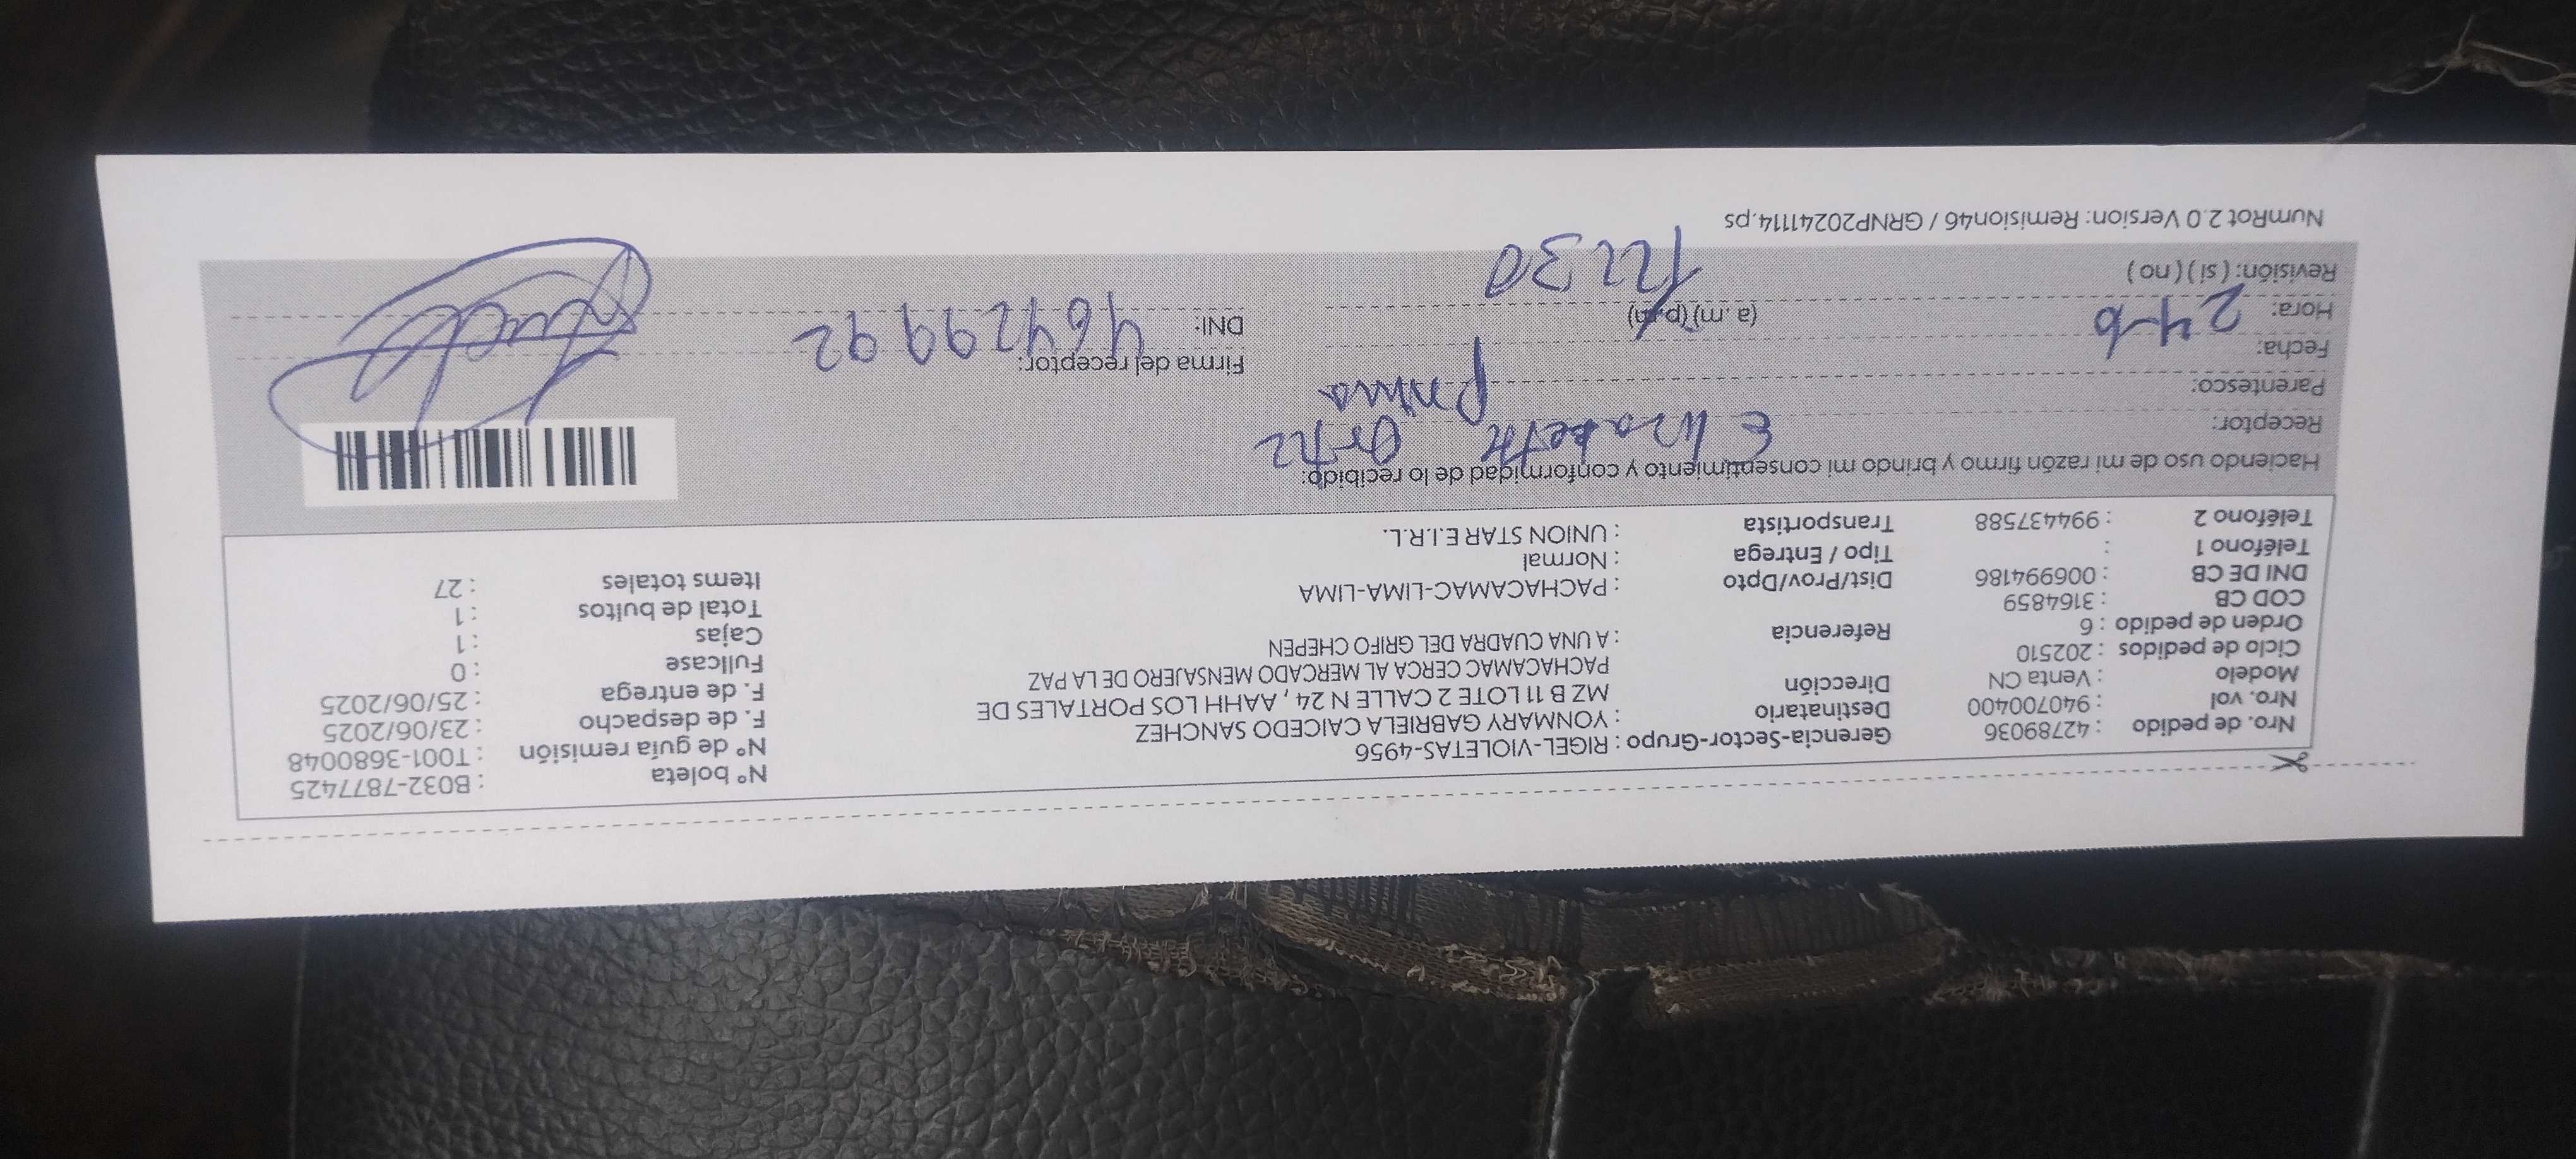 Nro. de pedido : 42789036 Gerencia-Sector-Grupo : RIGEL-VIOLETAS-4956 N° boleta : B032-7877425
Nro. vol : 940700400 Destinatario : YONMARY GABRIELA CAICEDO SANCHEZ N° de guía remisión : T001-3680048
Modelo : Venta CN Dirección MZ B 11 LOTE 2 CALLE N 24 , AAHH LOS PORTALES DE F. de despacho : 23/06/2025
Ciclo de pedidos : 202510 PACHACAMAC CERCA AL MERCADO MENSAJERO DE LA PAZ F. de entrega : 25/06/2025
Orden de pedido : 6 Referencia : A UNA CUADRA DEL GRIFO CHEPEN Fullcase : 0
COD CB : 3164859 Cajas : 1
DNI DE CB : 006994186 Dist/Prov/Dpto : PACHACAMAC-LIMA-LIMA Total de bultos : 1
Teléfono 1 : Tipo / Entrega : Normal Items totales : 27
Teléfono 2 : 994437588 Transportista : UNION STAR E.I.R.L.
Haciendo uso de mi razón firmo y brindo mi consentimiento y conformidad de lo recibido:
Receptor: Elizabeth Ortiz
Parentesco: Prima
Fecha: 24-6 Firma del receptor:
Hora: (a. m) (p. m) 12:30 DNI: 46429992
Revisión: ( si ) ( no )
NumRot 2.0 Version: Remision46 / GRNP20241114.ps